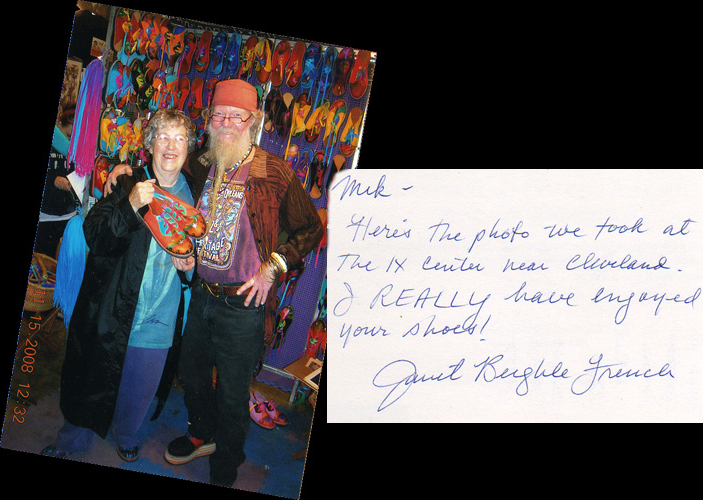 Mik -
Here's the photo we took at
the IX Center near Cleveland.
I REALLY have enjoyed
your shoes!
Janet French
ORLEANS
HERITAGE
FESTIVAL
15 2008 12:32